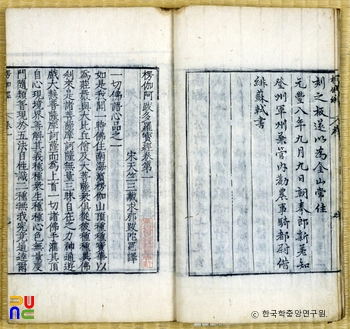 刻之板遂以為金山常住
元豐八年九月九日朝奉郎新差知
登州軍州兼管內勸農事騎都尉借
緋蘇軾書
楞伽阿跋多羅寶經卷第一
宋天竺三藏求那跋陀羅譯
一切佛語心品之一
如是我聞一時佛住南海濱楞伽山頂種種寶華以
為莊嚴與大比丘僧及大菩薩眾俱從彼種種異佛
剎來是諸菩薩摩訶薩無量三昧自在之力神通遊
戲大慧菩薩摩訶薩而為上首一切諸佛手灌其頂
自心現境界善解其義種種眾生種種心色無量度
門隨類普現於五法自性識二種無我究竟通達爾
ⓒ 한국학중앙연구원